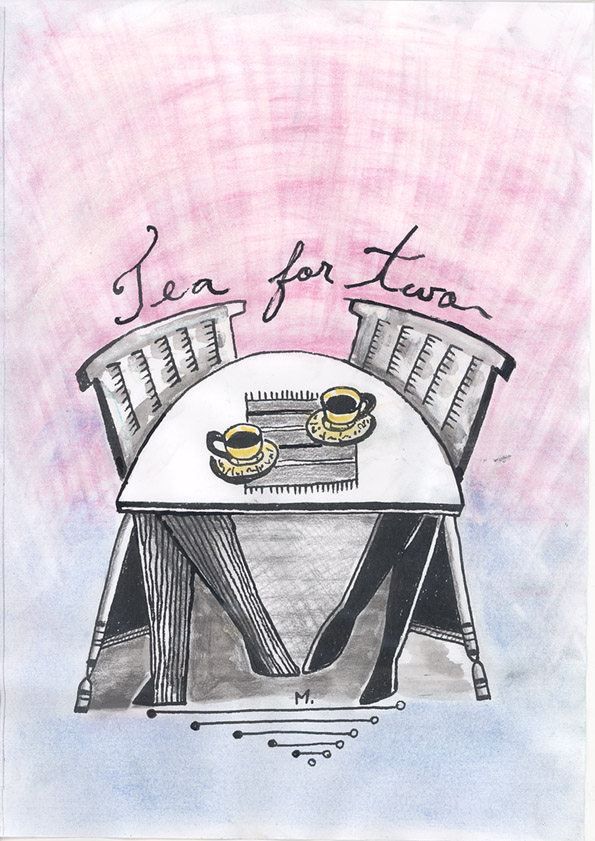 Tea for two
M.